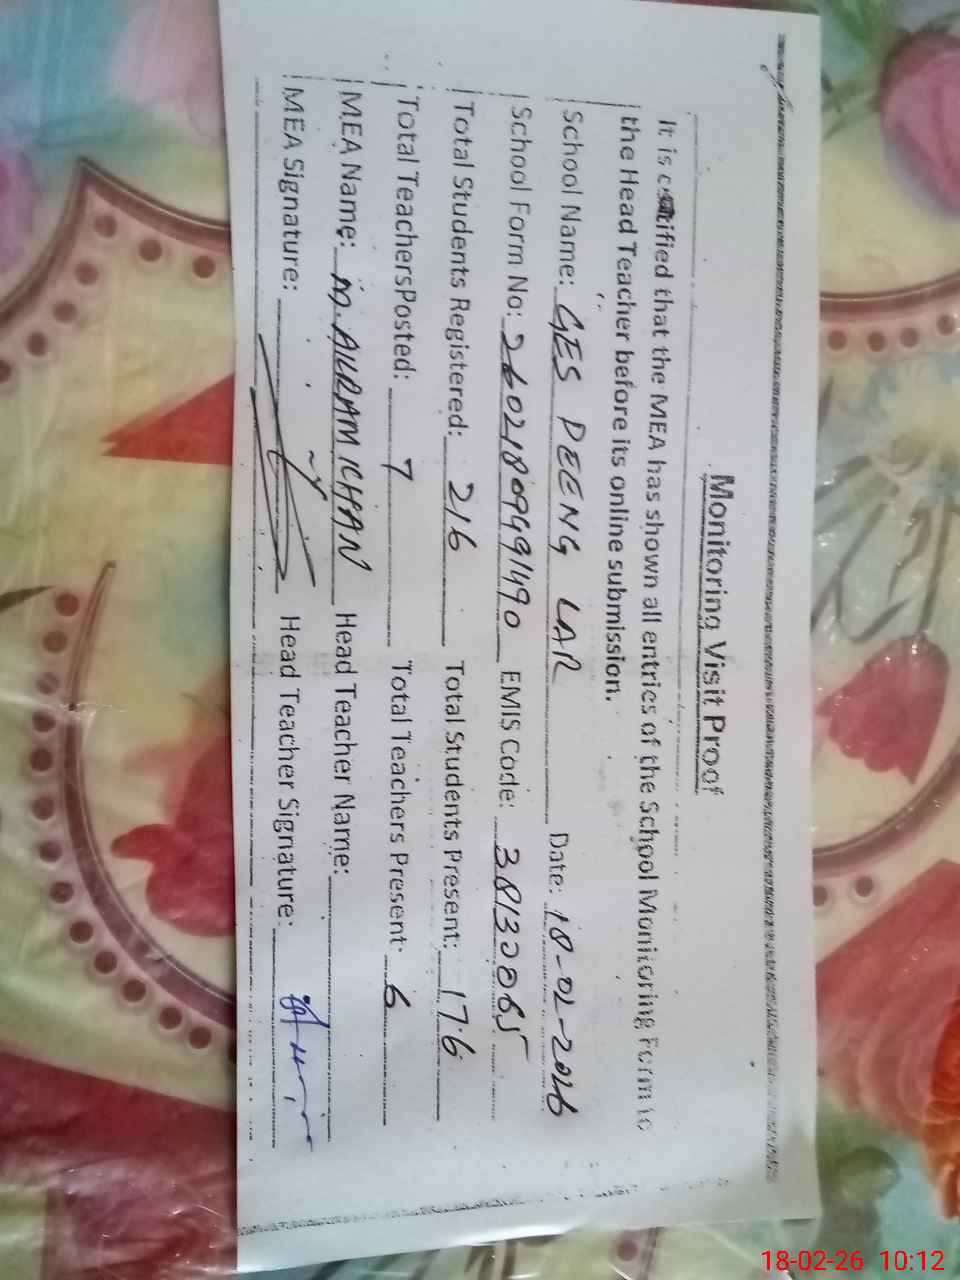 Monitoring Visit Proof
It is certified that the MEA has shown all entries of the School Monitoring Form to
the Head Teacher before its online submission.
School Name: GES DEENG LAR Date: 18-02-2026
School Form No: 26021809991490 EMIS Code: 38132065
Total Students Registered: 216 Total Students Present: 176
Total TeachersPosted: 7 Total Teachers Present: 6
MEA Name: Head Teacher Name:
MEA Signature: Head Teacher Signature:
18-02-26 10:12